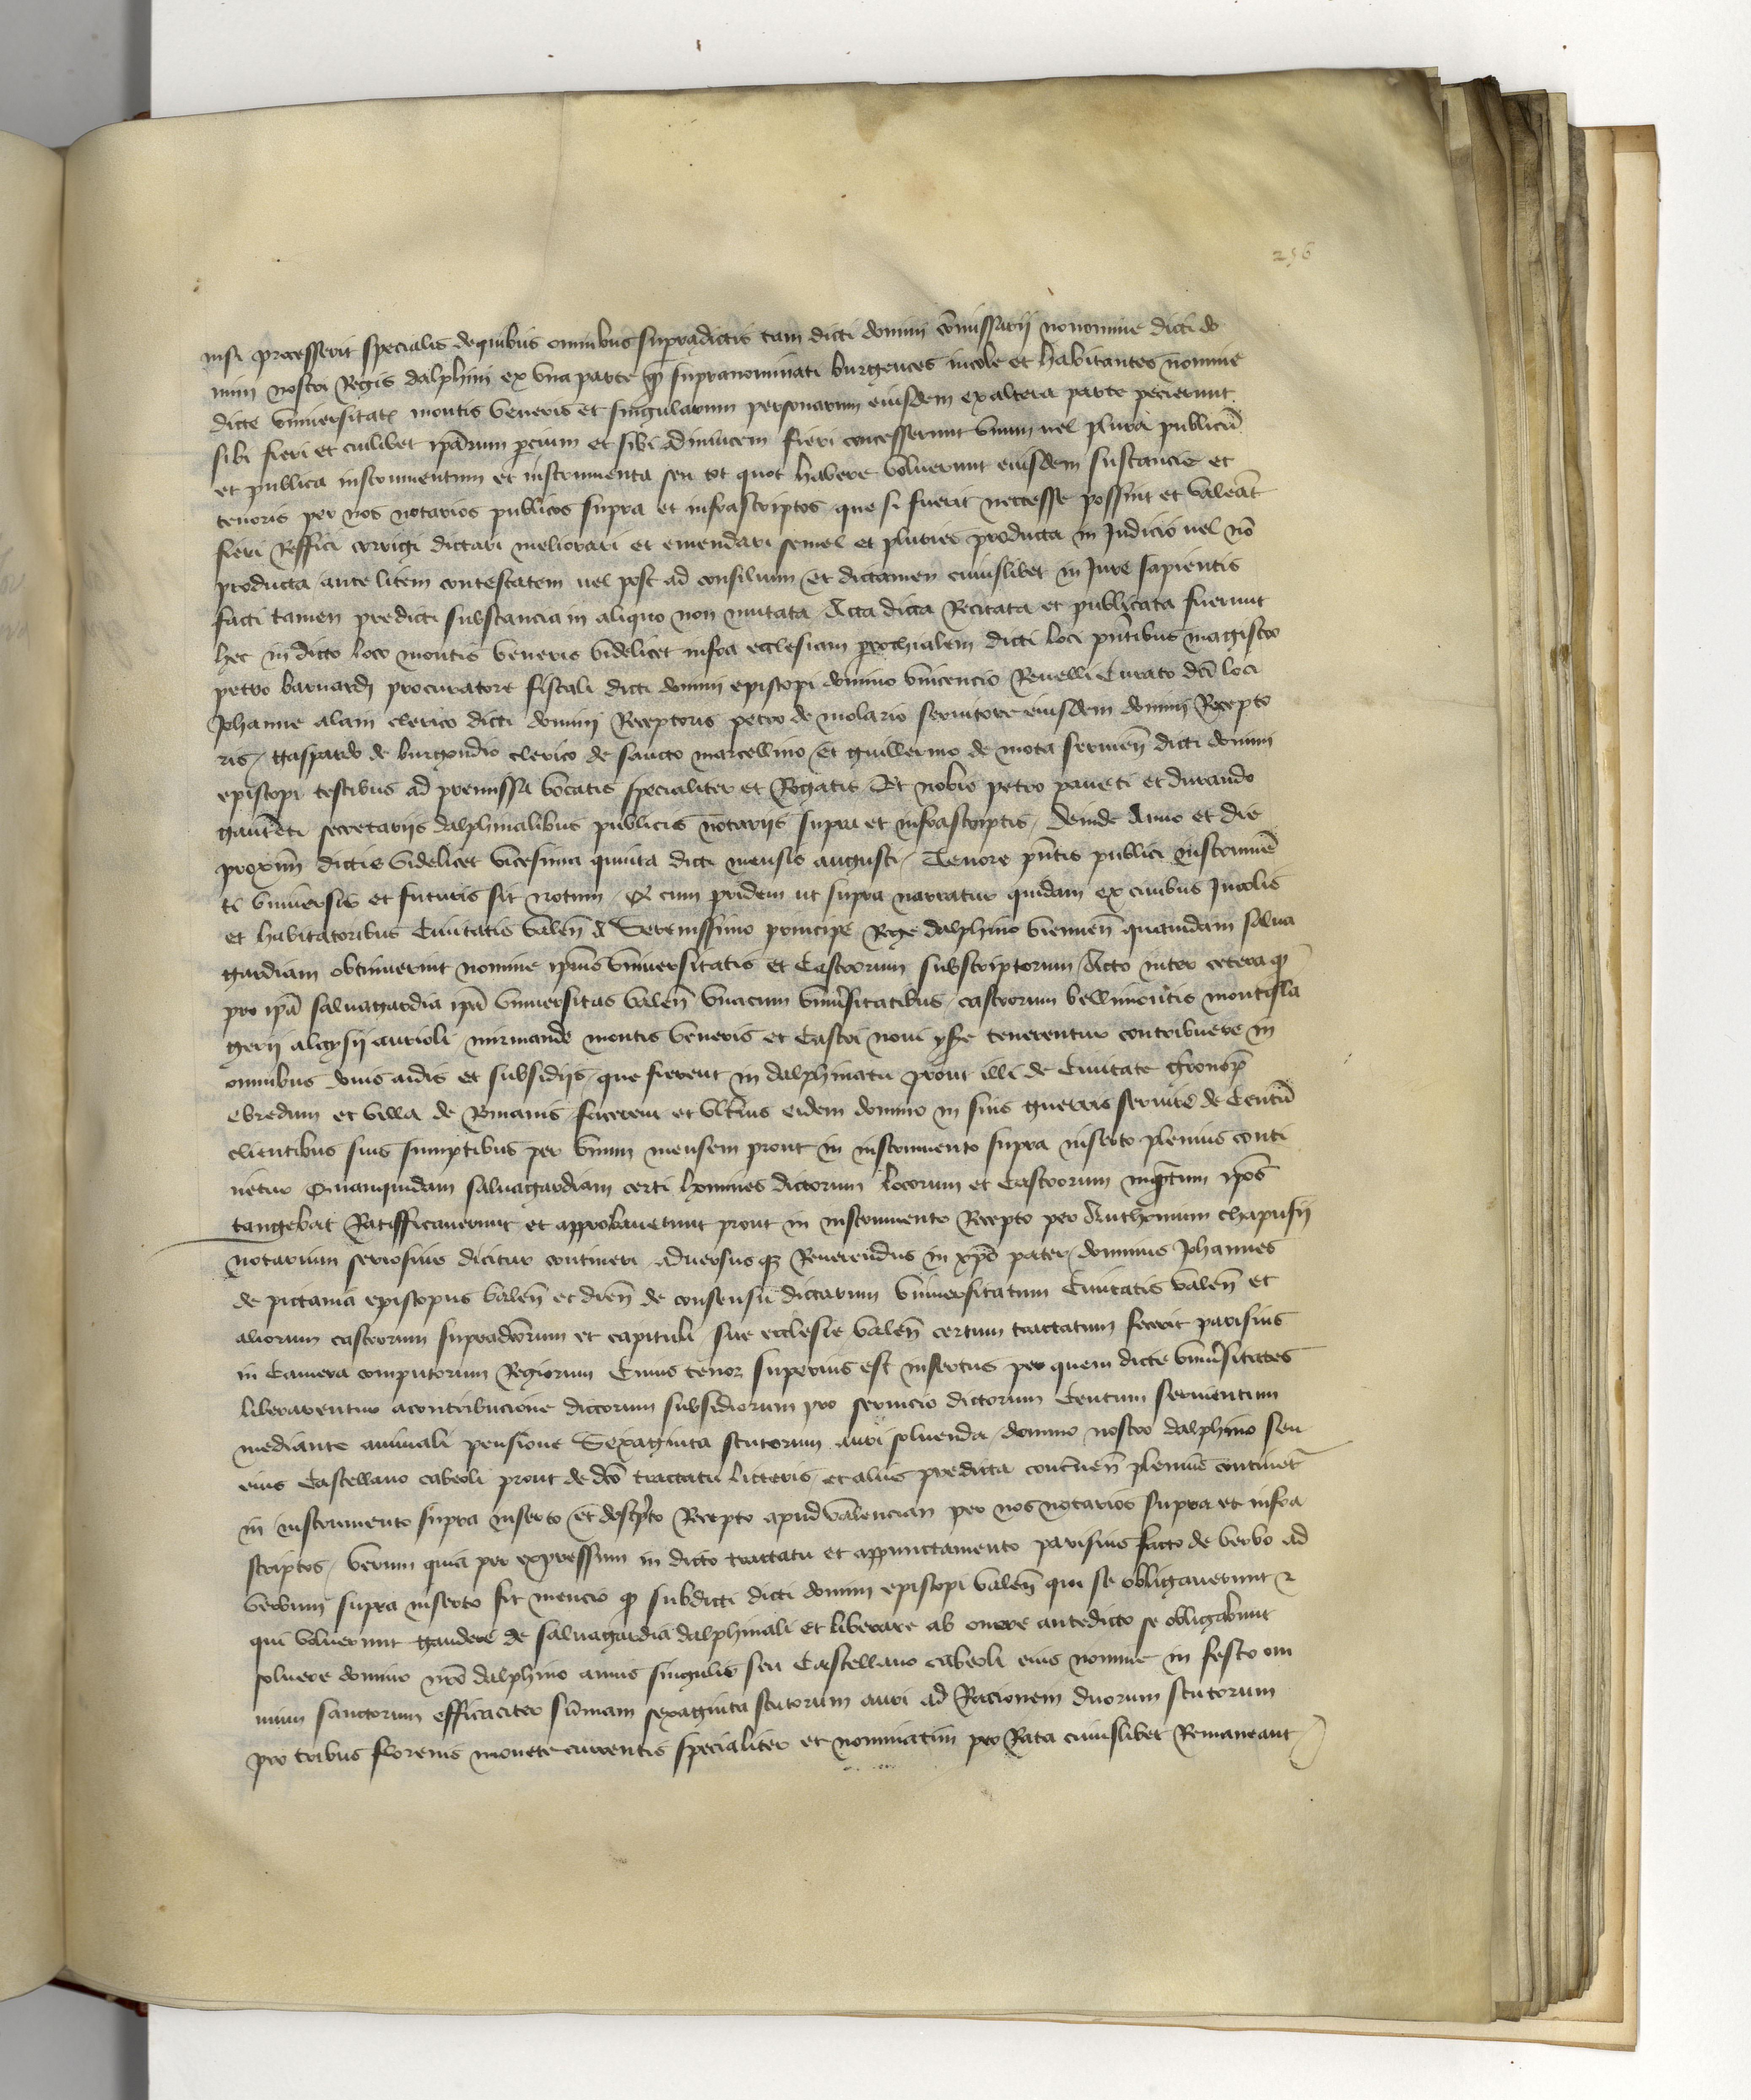 256
nisi precesserit specialis de quibus omnibus supradictis tam dicti domini cōmissarii nonomine dicti do
mini nostri Regis dalphini ex vna parte qm̄ supranominati burgenses incole et habitantes nomine
dicte vniuersitatis montis veneris et singularum personarum eiusdem ex altera parte pecierunt
sibi fieri et cuilibet ipārum parcium et sibi adinuicem fieri concesserunt vnum uel plura publicū
et publica instrumentum et instrumenta seu tot quot habere voluerunt eiusdem sustancie et
tenoris per nos notarios publicos supra et infrascriptos que si fuerit neccesse possint et valeāt
fieri Reffici corrigi dictari meliorari et emendari semel et pluries producta in Judicio uel nō
producta ante litem contestatem uel post ad consilium et dictamen cuiuslibet in Jure sapientis
facti tamen predicti substancia in aliquo non mutata Acta dicta Recitata et publicata fuerunt
hec in dicto loco montis veneris videlicet infra ecclesiam parrochialem dicti loci pn̄tibus magistro
petro barnardi procuratore fiscali dicti domini episcopi domino vincencio Reuelli Curato dci loci
Johanne alain clerico dicti domini Receptoris petro de molario seruitore eiusdem domini Recepto
ris / Gaspardo de burgondio clerico de sancto marcellino et guillermo de mota seruien̄ dicti domini
episcopi testibus ad premissa vocatis specialiter et Rogatis Et nobis petro paneti et durando
gauteti secretariis dalphinalibus publicis notariis supra et infrascriptis / Deinde Anno et die
proxim̄ dictis videlicet vicesima quinta dicti mensis augusti / Tenore pn̄tis publici instrumē
ti vniuersis et futuris sit notum / Q cum pridem ut supra narratur quidam ex ciuibus Incolis
et habitatoribus Ciuitatis valen̄ A Serenissimo principe Rege dalphino viennen̄ quamdam salua
gardiam obtinuerint nomine ipīus vniuersitatis et Castrorum subscriptorum / Acto inter cetera q̄
pro ipā saluagardia ipā vniuersitas valen̄ vnacum vniūsitatibus castrorum bellimontis montisla
gerii alaysii aurioli mirmande montis veneris et Castri noui ysē tenerentur contribuere in
omnibus donis aidis et subsidiis / que fierent in dalphinatu prout illi de Ciuitate Gronop̄
ebredun et villa de Rmanis facerent et vlt̄ius eidem domino in suis guerris seruire de Centū
clientibus suis sumptibus per vnum mensem prout in instrumento supra inserto plenius conti
netur Quamquidam saluagardiam certi homines dictorum locorum et Castrorum inq̄ntum ipōs
tangebat Ratifficauerunt et approbauerunt prout in instrumento Recepto per Anthonium chapusii
notarium seriosius dicitur contineri aduersusq; Reuerendus in xpō pater / dominus Johannes
de pictauia episcopus valen̄ et dien̄ de consensu dictarum vniuersitatum Ciuitatis valen̄ et
aliorum castrorum supradcōrum et capituli sue ecclesie valen̄ certum tractatum fecerit parisius
in Camera computorum Regiorum Cuius tenor superius est insertus per quem dicte vniūsitates
liberarentur acontribucione dictorum subsidiorum pro seruicio dictorum Centum seruientum
mediante annuali pensione Sexaginta scutorum auri soluenda / domino nostro dalphino seu
eius Castellano cabeoli prout de dcō tractatu litteris / et aliis predicta concn̄en̄ plenius continet̄
in instrumento supra inserto et descrip̄to Recepto apud valenciam per nos notarios supra et infra
scriptos / Verum quia per expressum in dicto tractatu et appunctamento parisius facto de verbo ad
verbum supra inserto fit mencio q̄ subdicti dicti domini episcopi valen̄ qui se obligauerunt et
qui voluerunt gaudere de saluagardia dalphinali et liberare ab onere antedicto se obligabunt
soluere domino nrō dalphino annis singulis seu Castellano cabeoli eius nomine in festo om
nium sanctorum efficaciter sūmam sexaginta scutorum auri ad Racionem duorum scutorum
pro tribus florenis monete currentis specialiter et nominatim pro Rata cuiuslibet Remaneant